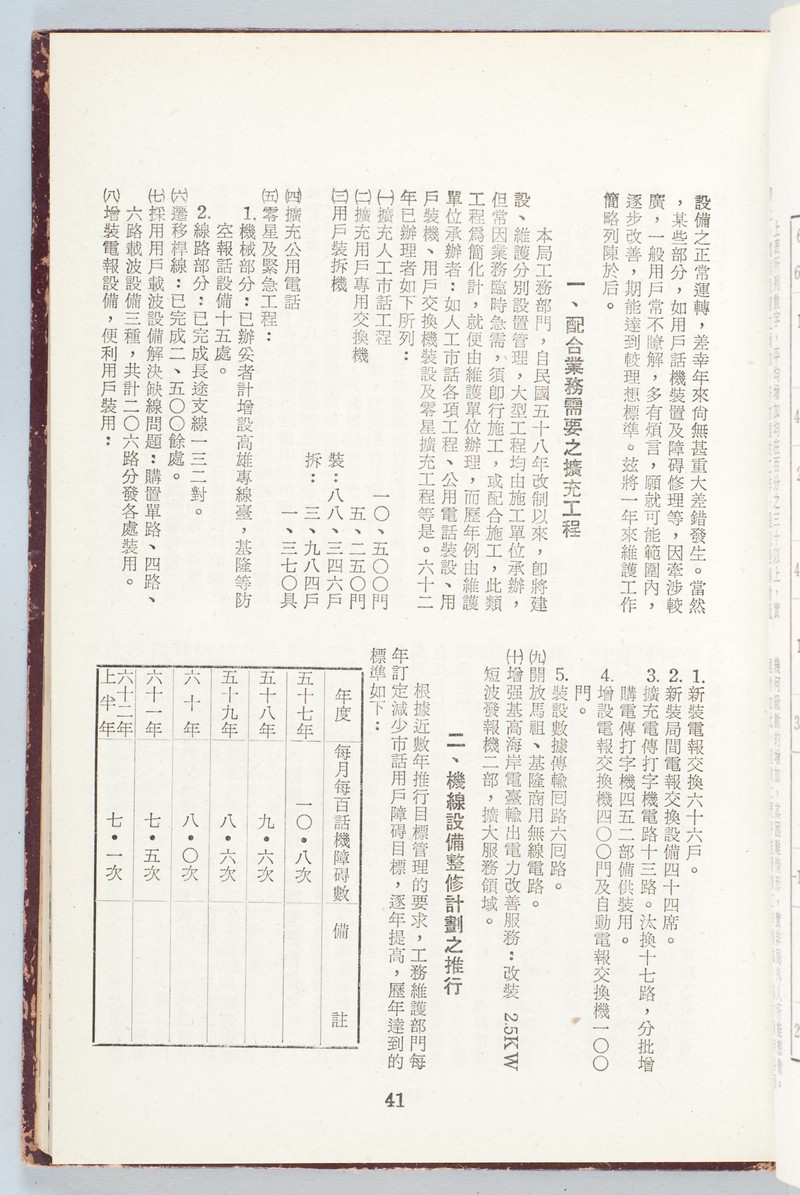 設備之正常運轉，差幸年來尙無甚重大差錯發生。當然
，某些部分，如用戶話機裝置及障碍修理等，因牽涉較
廣，一般用戶常不瞭解，多有煩言，願就可能範圍內，
逐步改善，期能達到較理想標準。玆將一年來維護工作
簡略列陳於后。
一、配合業務需要之擴充工程
本局工務部門，自民國五十八年改制以來，卽將建
設、維護分別設置管理，大型工程均由施工單位承辦，
但常因業務臨時急需，須卽行施工，或配合施工，此類
工程爲簡化計，就便由維護單位辦理，而歷年例由維護
單位承辦者：如人工市話各項工程、公用電話裝設、用
戶裝機、用戶交換機裝設及零星擴充工程等是。六十二
年已辦理者如下所列：
㈠擴充人工市話工程　一〇、五〇〇門
㈡擴充用戶專用交換機　五、二五〇門
㈢用戶裝拆機　裝：八八、三四六戶
拆：　三、九八四戶
㈣擴充公用電話　一、三七〇具
㈤零星及緊急工程：
1.機械部分：已辦妥者計增設高雄專線臺，基隆等防
空報話設備十五處。
2.線路部分：已完成長途支線一三二對。
㈥遷移桿線：已完成二、五〇〇餘處。
㈦採用用戶載波設備解決缺線問題：購置單路、四路、
六路載波設備三種，共計二〇六路分發各處裝用。
㈧增裝電報設備，便利用戶裝用：
1.新裝電報交換六十六戶。
2.新裝局間電報交換設備四十四席。
3.擴充電傳打字機電路十三路。汰換十七路，分批增
購電傳打字機四五二部備供裝用。
4.增設電報交換機四〇〇門及自動電報交換機一〇〇
門。
5.裝設數據傳輸囘路六囘路。
㈨開放馬祖、基隆商用無線電路。
㈩增强基高海岸電臺輸出電力改善服務：改裝 2.5KW
短波發報機二部，擴大服務領域。
二、機線設備整修計劃之推行
根據近數年推行目標管理的要求，工務維護部門每
年訂定減少市話用戶障碍目標，逐年提高，歷年達到的
標準如下：
年度　每月每百話機障碍數　備　註
五十七年　一〇・八次
五十八年　九・六次
五十九年　八・六次
六十年　八・〇次
六十一年　七・五次
六十二年上半年　七・一次
41